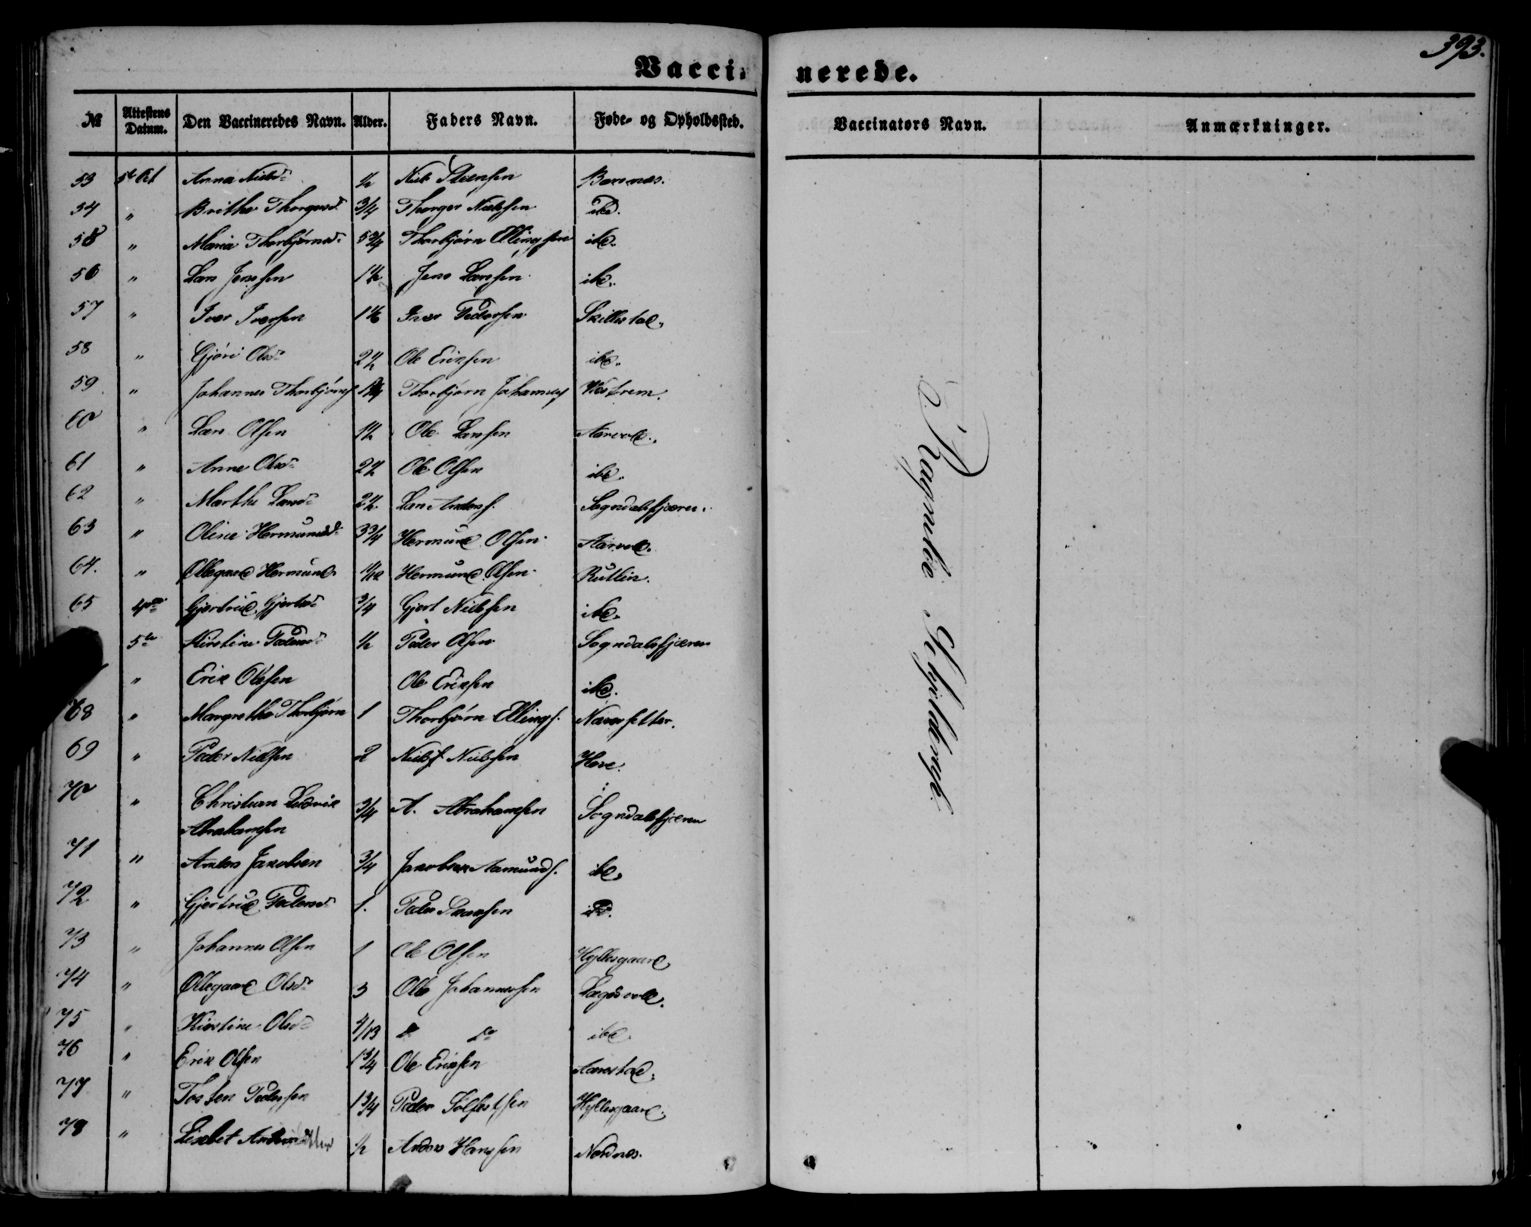 393.
Vaccinerede.
№ Attestens Datum. Den Vaccineredes Navn. Alder. Faders Navn. Føde- og Opholdssted. Vaccinators Navn. Anmærkninger.
53 5te Oct Anna Nielsd. ½ Niels
54 " Brithe Thorgersd. 3/4 Thorger Nielssen ibd.
55 " Maria Thorbjørnsd. Thorbjørn Ellingssen ibd.
56 " Lars Jenssen 1½ Jens Larssen ibd.
57 " Iver Iverssen Iver Pederssen Skillestad.
58 " Gjøri Olsd. 2½ Ole Erikssen ibd.
59 " Johannes Thorbjørns. Thorbjørn Johanness. Vestrem.
60 " Lars Olssen 1½ Ole Larssen Aarvold.
61 " Anne Olsd. 2½ Ole Olssen ibd.
62 " Marthe Larsd. 2½ Lars Anders. Sogndalsfjæren.
63 " Oline Hermundsd. 3 3/4 Hermund Olssen Aarvold.
64. " Ollegaard Hermunds. Hermund Olssen Rutlin.
65 Gjertrud Gjertsd. 3/4 Gjert Nielssen ibd.
5te Kirstine Pedersd. ½ Peder Olssen Sogndalsfjæren
" Erik Olssen Ole Erikssen ibd.
68 " Margrethe Thorbjørn 1 Thorbjørn Ellings. Navarsetter.
69 " Peder Nielssen 2 Niels Nielssen Hove.
70 " Christian Ludvig Abrahamssen 3/4 A. Abrahamssen Sogndalsfjæren
71 " Anders Jacobsen 3/4 Jacob Aamunds. ibd.
72 " Gjertrud Pedersd. 1. Peder Larssen ibd.
73 " Johannes Olssen 1 Ole Olssen Hyllesgaard.
74 " Ollegaard Olsd. 3 Ole Johannessen Lægdevold.
75 " Kirstine Olsd. 4/13 do do ibd.
76 " Erik Olssen 1 3/4 Ole Erikssen Aarestad.
77 " Tosten Pederssen 1 3/4 Peder Solfestssen Hyllesgaard.
78 " Lisbet Andersdatter ½ Anders Hanssen Nordnes.
Ragnilde Schjelderup.